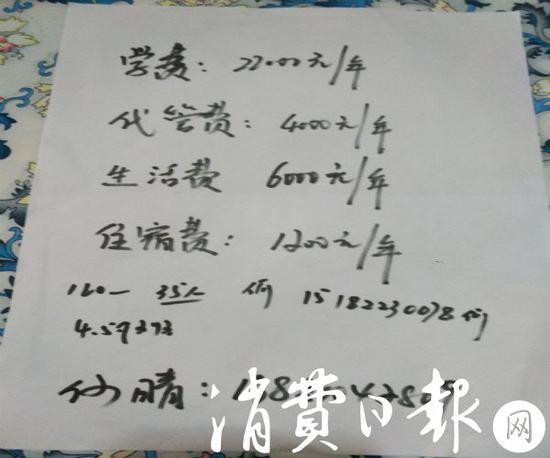 学费：22000元/年
代管费：4000元/年
生活费 6000元/年
住宿费：1200元/年
120一 35人 何 15182230078
4.5号
晴：
消费日报网